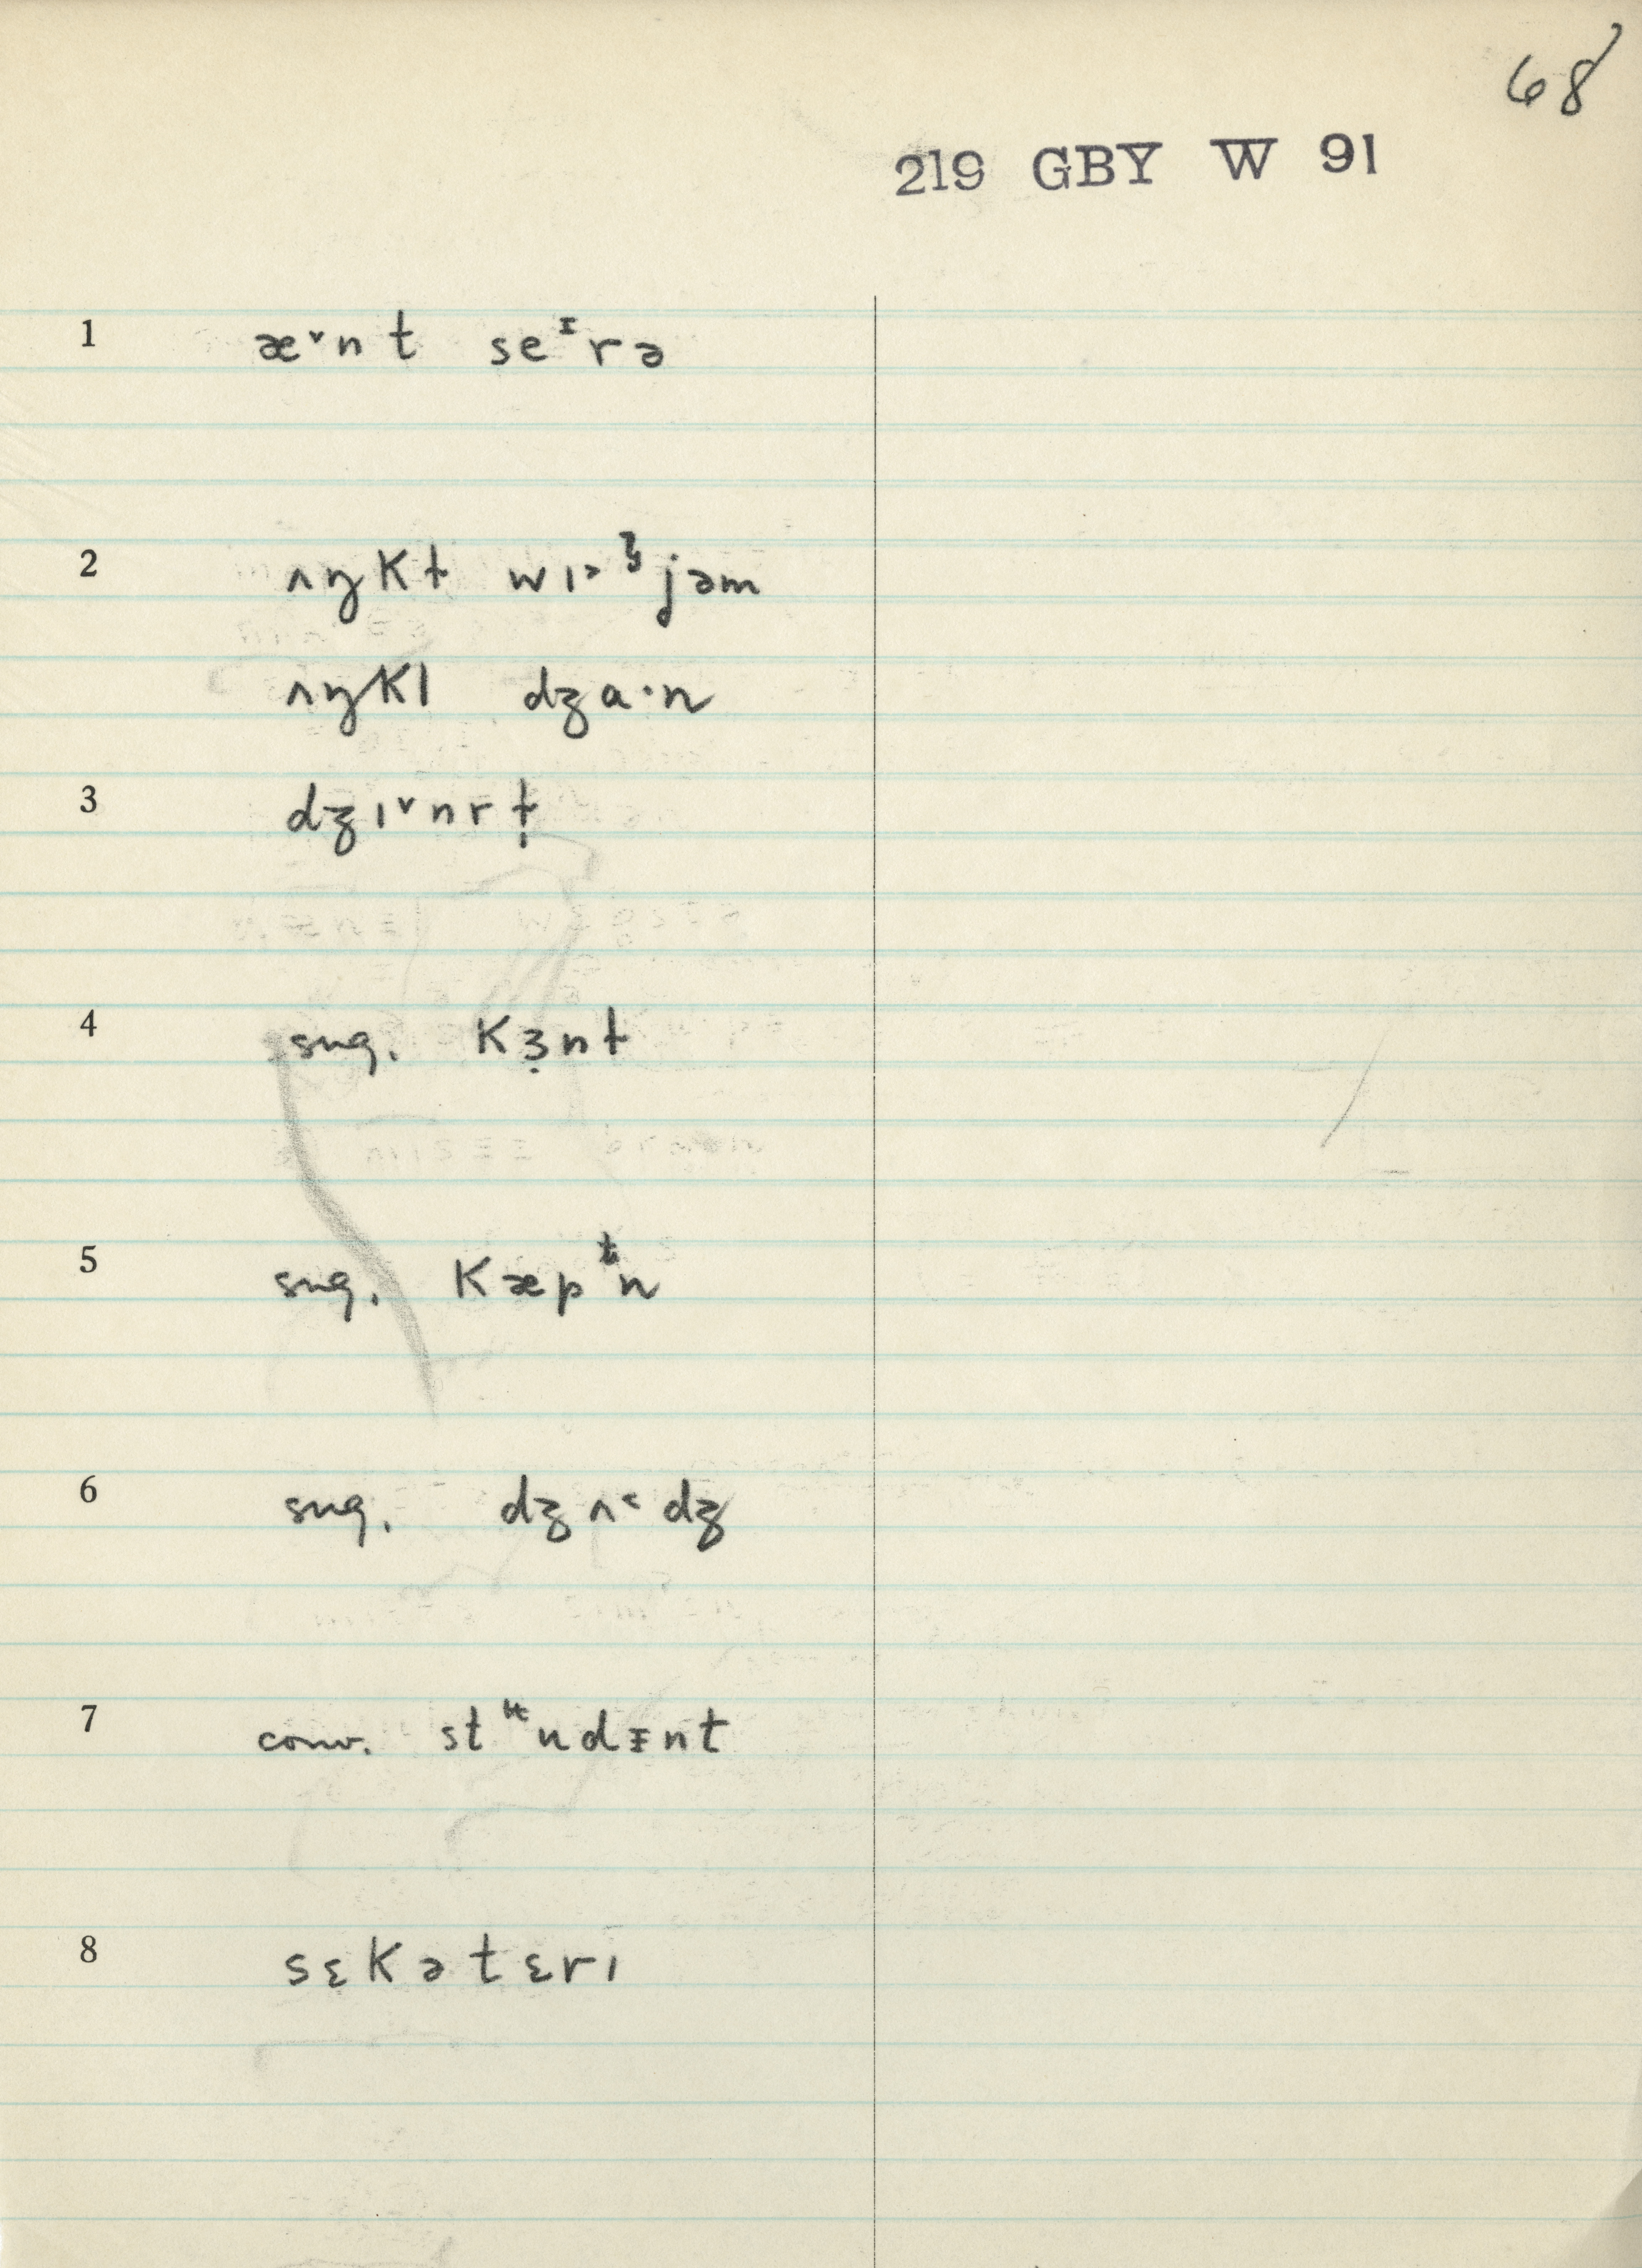 68
219 GBY W 91
1 æ˅nt seᵻrə
2 ʌŋkɫ wɪ˃ɮjəm
ʌŋkl dʒɑ·n
3 dʒɪ˅nrɫ̣
4 sug. kɜ̣nt
5 sug. kæpᵗn
6 sug. dʒʌ˂dʒ
7 conv. stᵻʉndᵻnt
8 sɛ̣kətɛrɪ